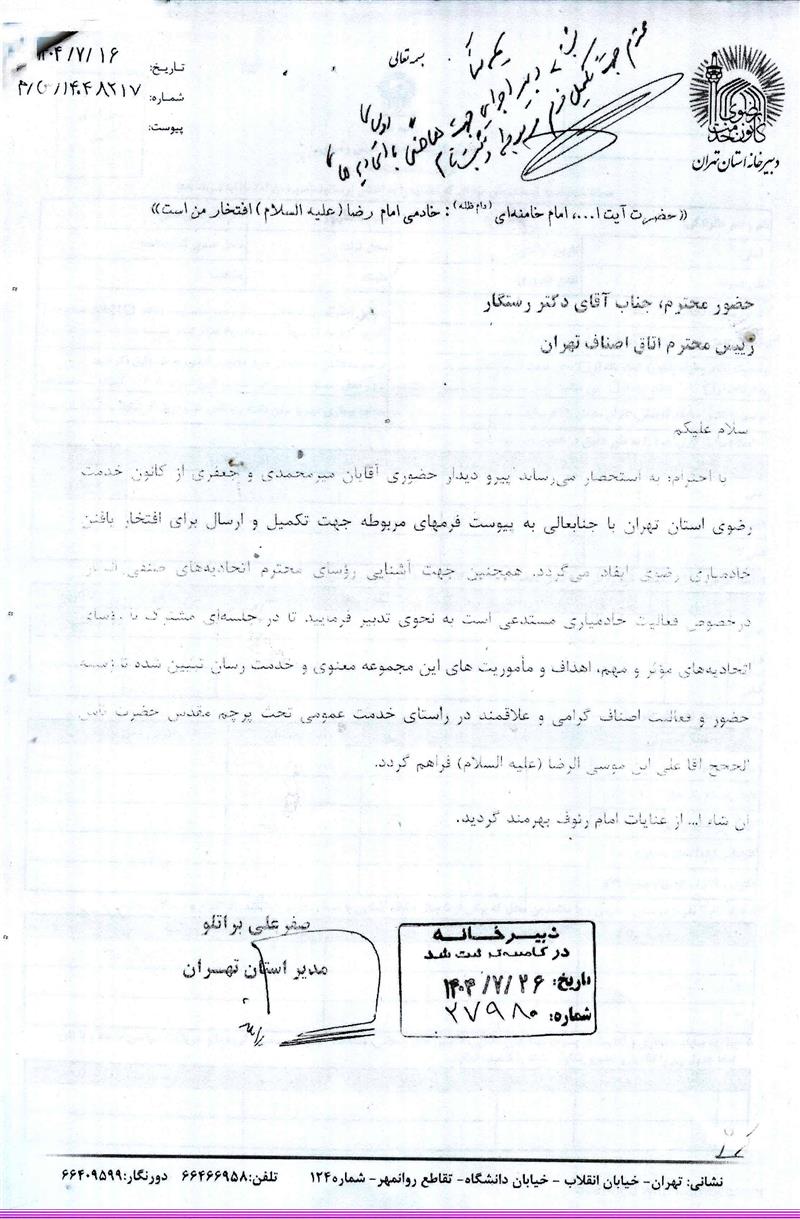 بسمه تعالی
تاریخ: ۱۴۰۴/۷/۱۶
شماره: ۱۴۰۴۸۲۱۷/
پیوست:
کانون خدمت رضوی
دبیرخانه استان تهران
((حضرت آیت ا...، امام خامنه‌ای (دام ظله) : خادمی امام رضا (علیه السلام) افتخار من است))
حضور محترم، جناب آقای دکتر رستگار
رییس محترم اتاق اصناف تهران
سلام علیکم
با احترام؛ به استحضار می‌رساند پیرو دیدار حضوری آقایان میرمحمدی و جعفری از کانون خدمت
رضوی استان تهران با جنابعالی به پیوست فرمهای مربوطه جهت تکمیل و ارسال برای افتخار یافتن
خادمیاری رضوی ایفاد می‌گردد. همچنین جهت آشنایی رؤسای محترم اتحادیه‌های صنفی
درخصوص فعالیت خادمیاری مستدعی است به نحوی تدبیر فرمایید تا در جلسه‌ای مشترک با رؤسای
اتحادیه‌های مؤثر و مهم، اهداف و مأموریت های این مجموعه معنوی و خدمت رسان تبیین شده تا زمینه
حضور و فعالیت اصناف گرامی و علاقمند در راستای خدمت عمومی تحت پرچم مقدس حضرت ثامن
الحجج آقا علی ابن موسی الرضا (علیه السلام) فراهم گردد.
ان شاء ا... از عنایات امام رئوف بهرمند گردید.
صفرعلی براتلو
مدیر استان تهران
دبیرخانه
در کامپیوتر ثبت شد
تاریخ: ۱۴۰۴/۷/۲۶
شماره: ۲۷۹۸۰
نشانی: تهران- خیابان انقلاب - خیابان دانشگاه- تقاطع روانمهر- شماره۱۲۴ تلفن:۶۶۴۶۶۹۵۸ دورنگار:۶۶۴۰۹۵۹۹